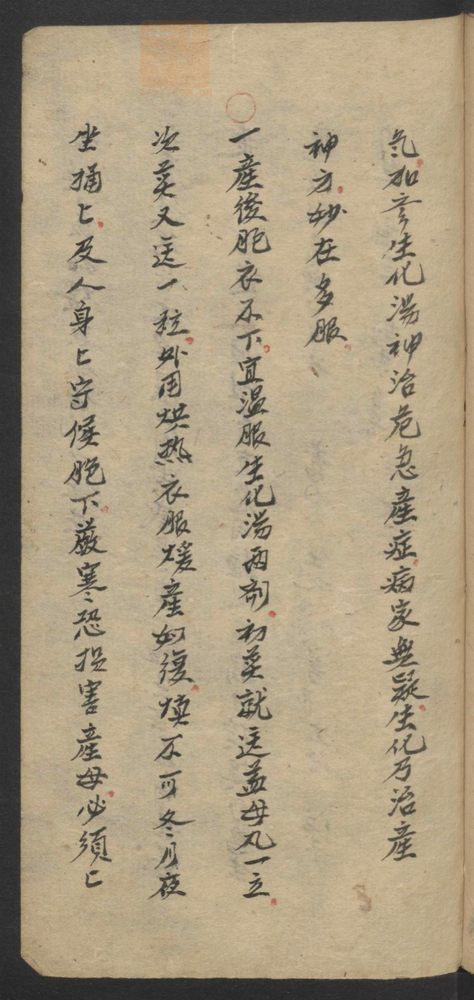 氣加參生化湯神治危急產症病家無疑生化乃治產
神方妙在多服
一產後胞衣不下宜溫服生化湯兩劑初煎就送益母丸一立
次煎又送一粒外用烘热衣服煖產婦復慎不可冬月夜
坐桶上及人身上守候胞下嚴寒恐損害產母必須上